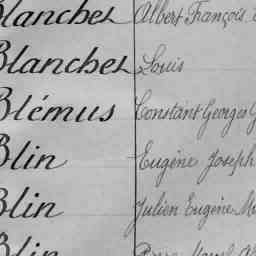 Blanchet Albert François
Blanchet Louis
Blémus Constant Georges G
Blin Eugène Joseph
Blin Julien Eugène M
Blin